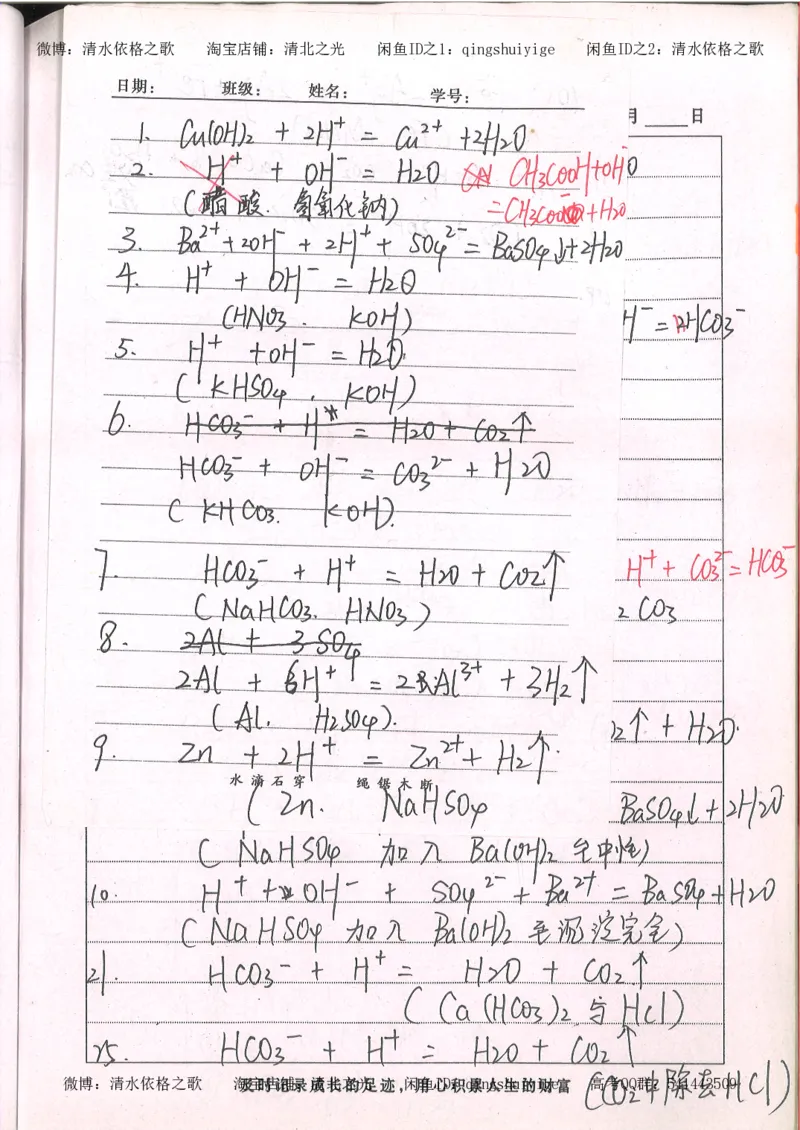 微博：清水依格之歌 淘宝店铺：清北之光 闲鱼ID之1：qingshuiyige 闲鱼ID之2：清水依格之歌
日期： 班级： 姓名： 学号：
月 日
1. Cu(OH)₂ + 2H⁺ = Cu²⁺ + 2H₂O
2. H⁺ + OH⁻ = H₂O CH₃COOH + OH⁻
(醋酸. 氢氧化钠) = CH₃COO⁻ + H₂O
3. Ba²⁺ + 2OH⁻ + 2H⁺ + SO₄²⁻ = BaSO₄↓ + 2H₂O
4. H⁺ + OH⁻ = H₂O
(HNO₃. KOH)
H⁻ = 2HCO₃⁻
5. H⁺ + OH⁻ = H₂O.
(KHSO₄, KOH)
6. HCO₃⁻ + H⁺ = H₂O + CO₂↑
HCO₃⁻ + OH⁻ = CO₃²⁻ + H₂O
(KHCO₃. KOH).
7. HCO₃⁻ + H⁺ = H₂O + CO₂↑ H⁺ + CO₃²⁻ = HCO₃⁻
(NaHCO₃. HNO₃) 2CO₃
8. 2Al + 3SO₄
2Al + 6H⁺ = 2Al³⁺ + 3H₂↑
(Al. H₂SO₄). 2↑ + H₂O.
9. Zn + 2H⁺ = Zn²⁺ + H₂↑.
水滴石穿 绳锯木断
(Zn. NaHSO₄ BaSO₄↓ + 2H₂O
(NaHSO₄ 加入 Ba(OH)₂ 至中性)
10. H⁺ + OH⁻ + SO₄²⁻ + Ba²⁺ = BaSO₄ + H₂O
(NaHSO₄ 加入 Ba(OH)₂ 至沉淀完全)
21. HCO₃⁻ + H⁺ = H₂O + CO₂↑
(Ca(HCO₃)₂ 与 HCl)
25. HCO₃⁻ + H⁺ = H₂O + CO₂↑
(CO₂中除去HCl)
及时记录成长的足迹，用心积累人生的财富
微博：清水依格之歌